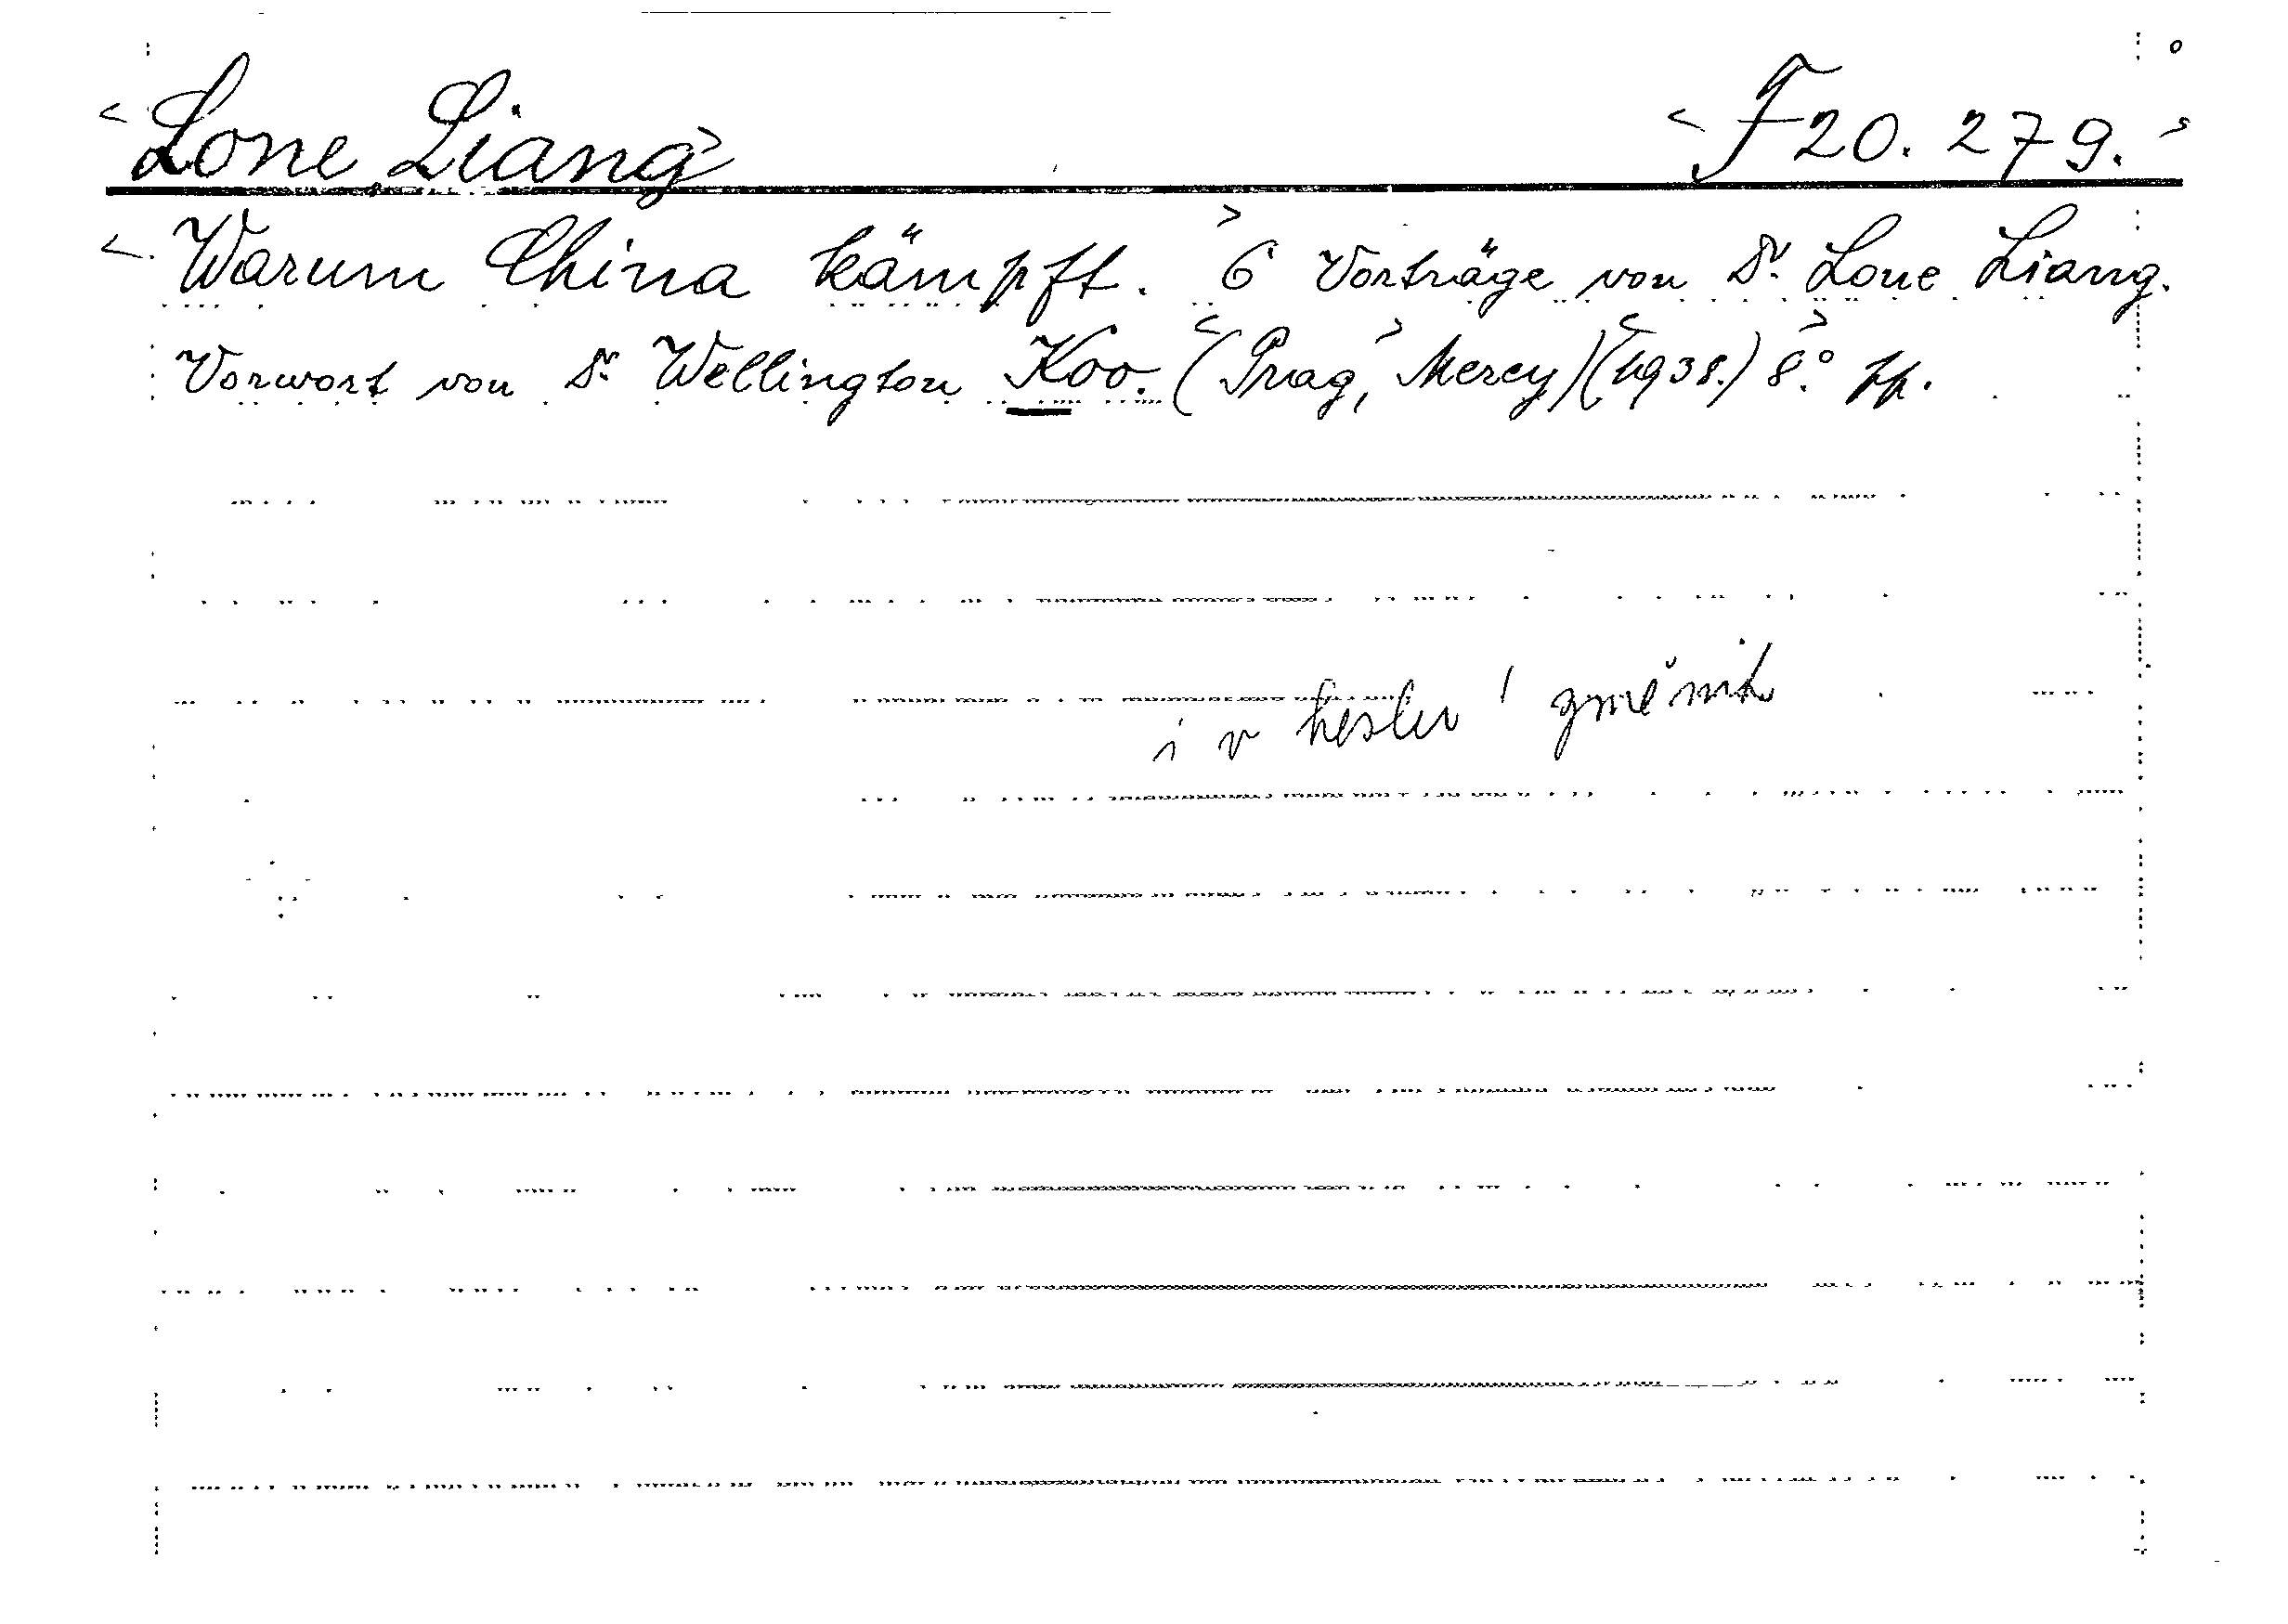 <Lone Liang> <F 20.279.>
<Warum China kämpft.> 6 Vorträge von Dr. Lone Liang.
Vorwort von Dr. Wellington Koo. <(Prag,> Mercy) <(1938.)> 8.° pp.
i v heslu změnit